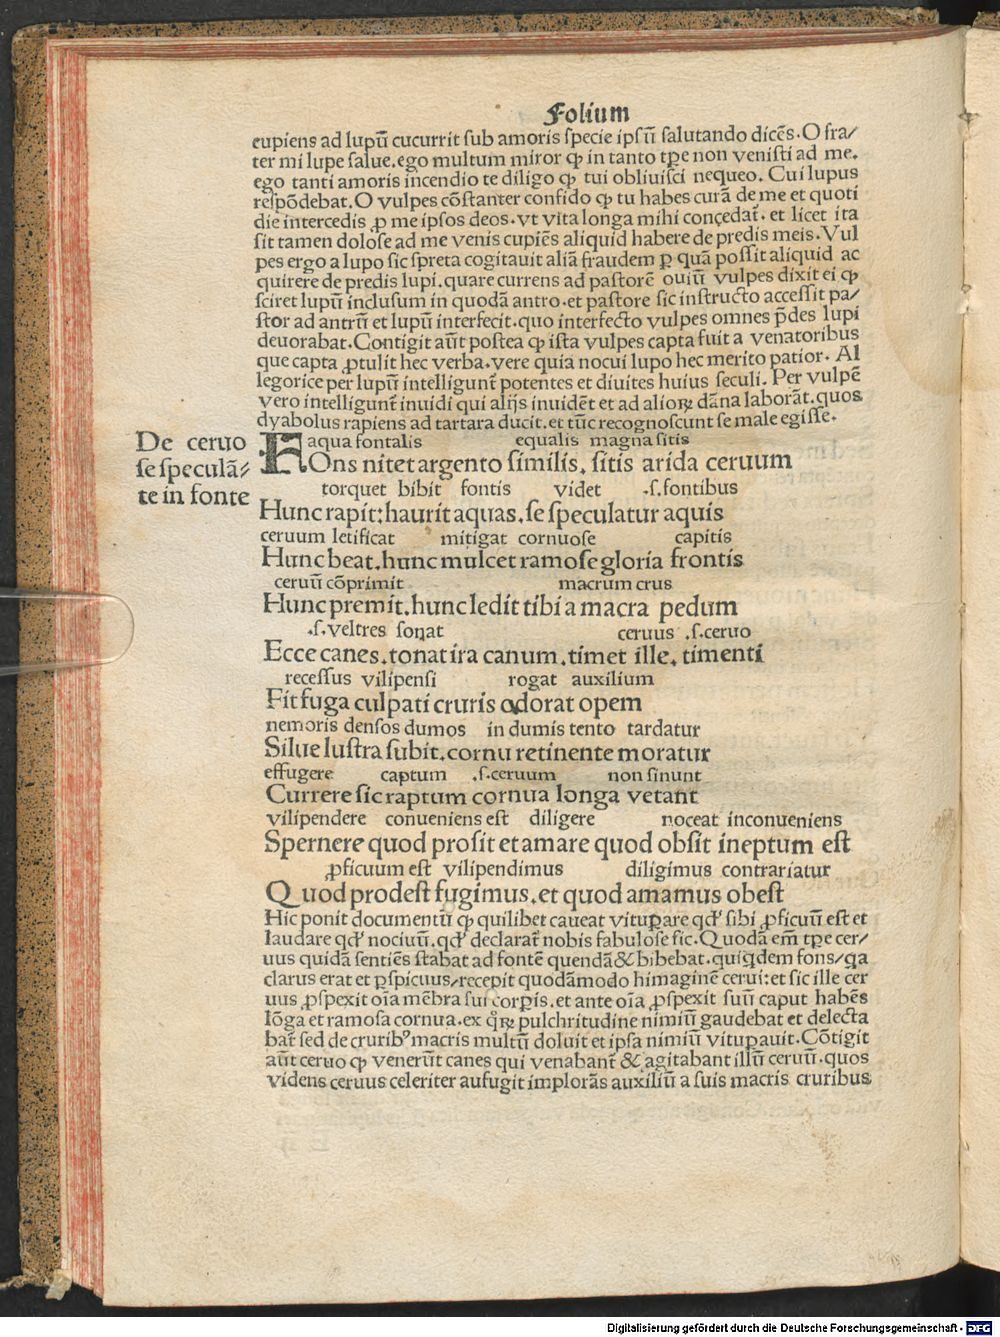 Folium
cupiens ad lupū cucurrit sub amoris specie ipsū salutando dicēs. O fra/
ter mi lupe salue. ego multum miror ꝙ in tanto tꝑe non venisti ad me.
ego tanti amoris incendio te diligo ꝙ tui obliuisci nequeo. Cui lupus
respōdebat. O vulpes cōstanter confido ꝙ tu habes curā de me et quoti
die intercedis ꝓ me ipsos deos. vt vita longa mihi concedat̄. et licet ita
sit tamen dolose ad me venis cupiēs aliquid habere de predis meis. Vul
pes ergo a lupo sic spreta cogitauit aliā fraudem ꝑ quā possit aliquid ac
quirere de predis lupi. quare currens ad pastorē ouiū vulpes dixit ei ꝙ
sciret lupū inclusum in quodā antro. et pastore sic instructo accessit pa/
stor ad antrū et lupū interfecit. quo interfecto vulpes omnes p̄des lupi
deuorabat. Contigit aūt postea ꝙ ista vulpes capta fuit a venatoribus
que capta ꝓtulit hec verba. vere quia nocui lupo hec merito patior. Al
legorice per lupū intelligunt̄ potentes et diuites huius seculi. Per vulpē
vero intelligunt̄ inuidi qui alijs inuidēt et ad alioꝝ dāna laborāt. quos
dyabolus rapiens ad tartara ducit. et tūc recognoscunt se male egisse.
De ceruo
se speculā/
te in fonte
aqua fontalis equalis magna sitis
FOns nitet argento similis. sitis arida ceruum
torquet bibit fontis videt .s. fontibus
Hunc rapit: haurit aquas. se speculatur aquis
ceruum letificat mitigat cornuose capitis
Hunc beat. hunc mulcet ramose gloria frontis
ceruū cōprimit macrum crus
Hunc premit. hunc ledit tibia macra pedum
.s. veltres sonat ceruus .s. ceruo
Ecce canes. tonat ira canum. timet ille. timenti
recessus vilipensi rogat auxilium
Fit fuga culpati cruris adorat opem
nemoris densos dumos in dumis tento tardatur
Silue lustra subit. cornu retinente moratur
effugere captum .s. ceruum non sinunt
Currere sic raptum cornua longa vetant
vilipendere conueniens est diligere noceat inconueniens
Spernere quod prosit et amare quod obsit ineptum est
ꝓficuum est vilipendimus diligimus contrariatur
Quod prodest fugimus. et quod amamus obest
Hic ponit documentū ꝙ quilibet caueat vituꝑare qd' sibi ꝓficuū est et
laudare qd' nociuū. qd' declarat̄ nobis fabulose sic. Quodā em̄ tꝑe cer/
uus quidā sentiēs stabat ad fontē quendā & bibebat. quiqdem fons/qa
clarus erat et ꝑspicuus/recepit quodāmodo himaginē cerui: et sic ille cer
uus ꝓspexit oīa mēbra sui corꝑis. et ante oīa ꝓspexit suū caput habēs
lōga et ramosa cornua. ex qꝝ pulchritudine nimiū gaudebat et delecta
bat̄ sed de crurib9 macris multū doluit et ipsa nimiū vituꝑauit. Cōtigit
aūt ceruo ꝙ venerūt canes qui venabant̄ & agitabant illū ceruū. quos
videns ceruus celeriter aufugit implorās auxiliū a suis macris cruribus
Digitalisierung gefördert durch die Deutsche Forschungsgemeinschaft - DFG